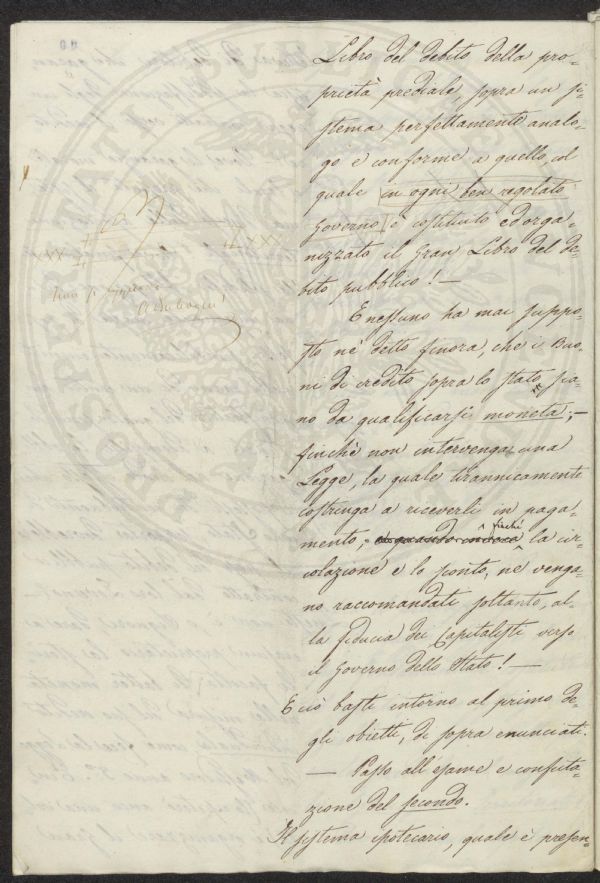 Libro del debito della pro-
prietà prediale, sopra un si-
stema perfettamente analo-
go e conforme a quello, al
quale in ogni ben regolato
Governo è costituito ed orga-
nizzato il Gran Libro del de-
bito pubblico! —
E nessuno ha mai suppo-
sto nè detto finora, che i Buo-
ni di credito sopra lo stato, sia-
no da qualificarsi moneta; —
finchè non intervenga una
Legge, la quale tirannicamente
costringa a riceverli in paga-
mento; finchè la cir-
colazione e lo sconto, ne venga-
no raccomandati soltanto, al-
la fiducia dei Capitalisti verso
il Governo dello Stato! —
E ciò basti intorno al primo de-
gli obietti, di sopra enunciati.
— Passo all'esame e confuta-
zione del secondo.
Il sistema ipotecario, quale è presen-